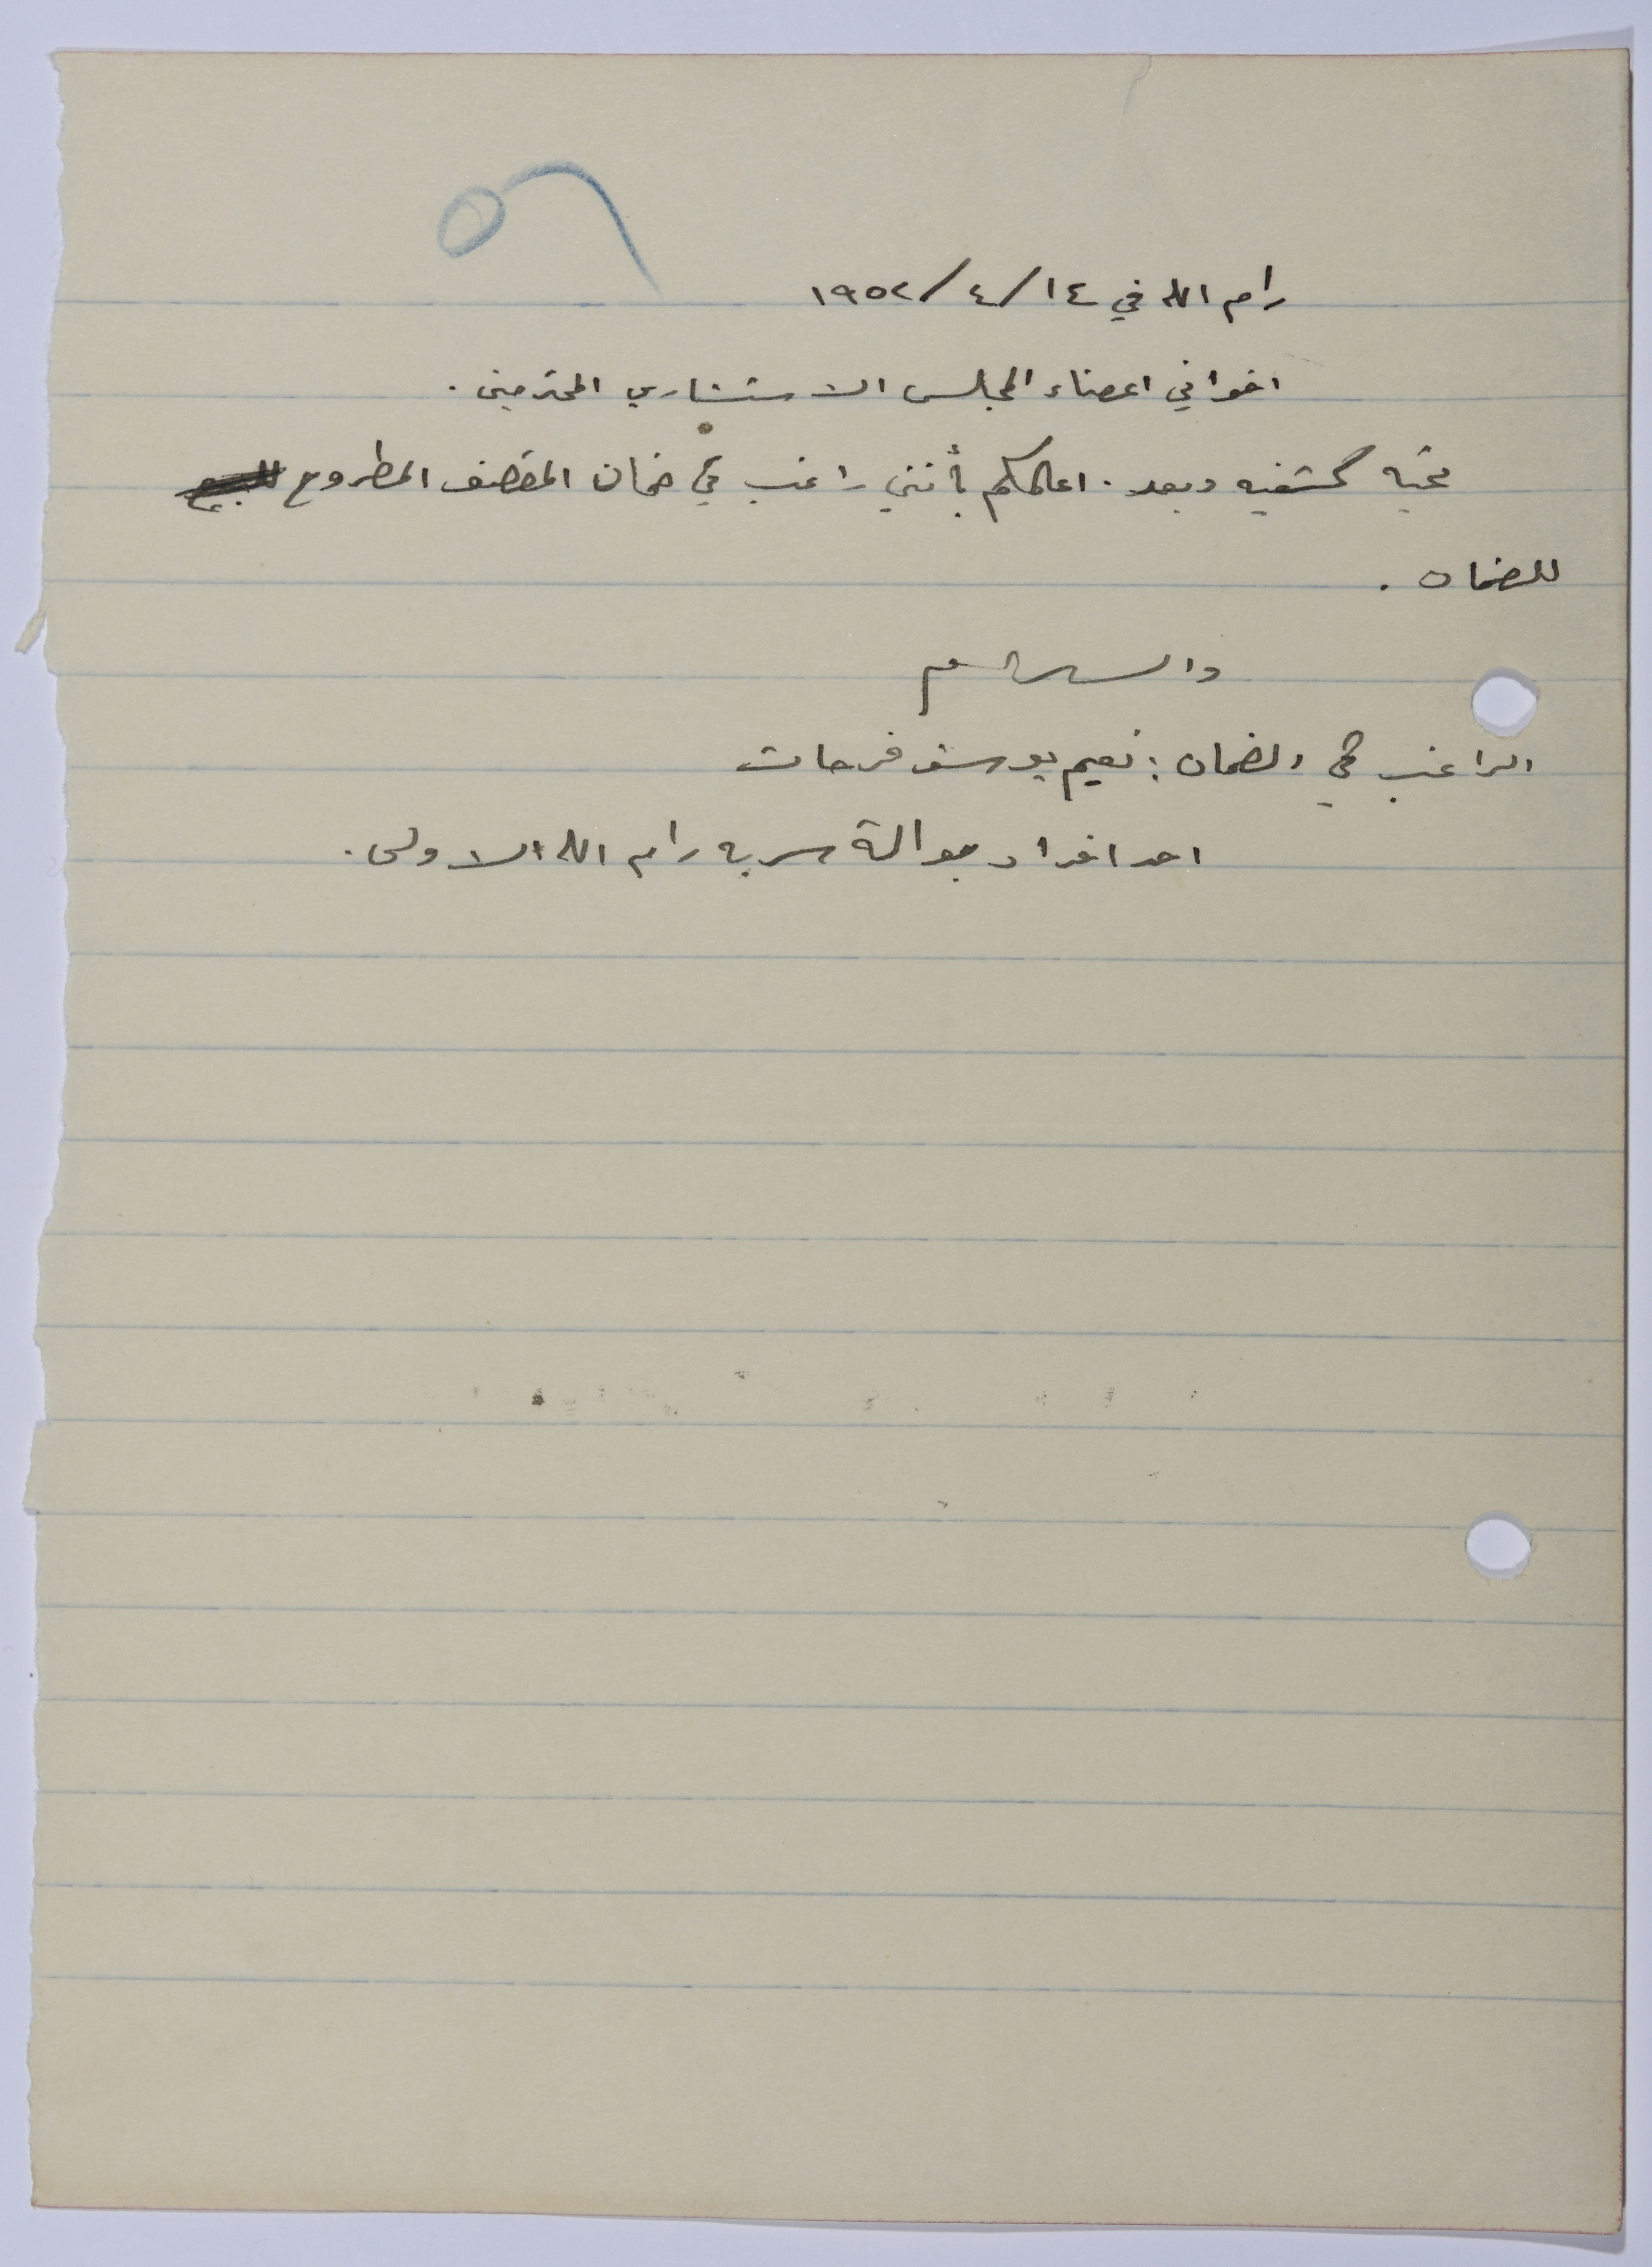 رام الله في ١٤/٤/١٩٥٢
اخواني اعضاء المجلس الاستشاري المحترمين.
تحيه كشفيه وبعد. اعلمكم بأنني راغب في ضمان المقصف المطروح
للضمان.
والسلام
الراغب في الضمان: نعيم يوسف فرحات
احد افراد جوالة سريه رام الله الاولى.